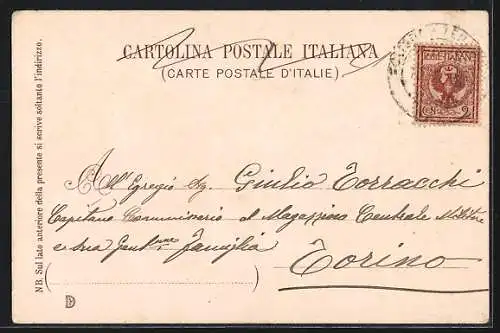 CARTOLINA POSTALE ITALIANA
(CARTE POSTALE D'ITALIE)
NB. Sul lato anteriore della presente si scrive soltanto l'indirizzo.
POSTE ITALIANE
2
All'Egregio Sig. Giulio Torracchi
Capitano Commissario al Magazzino Centrale Militare
e Sua Gent.ma Famiglia
Torino